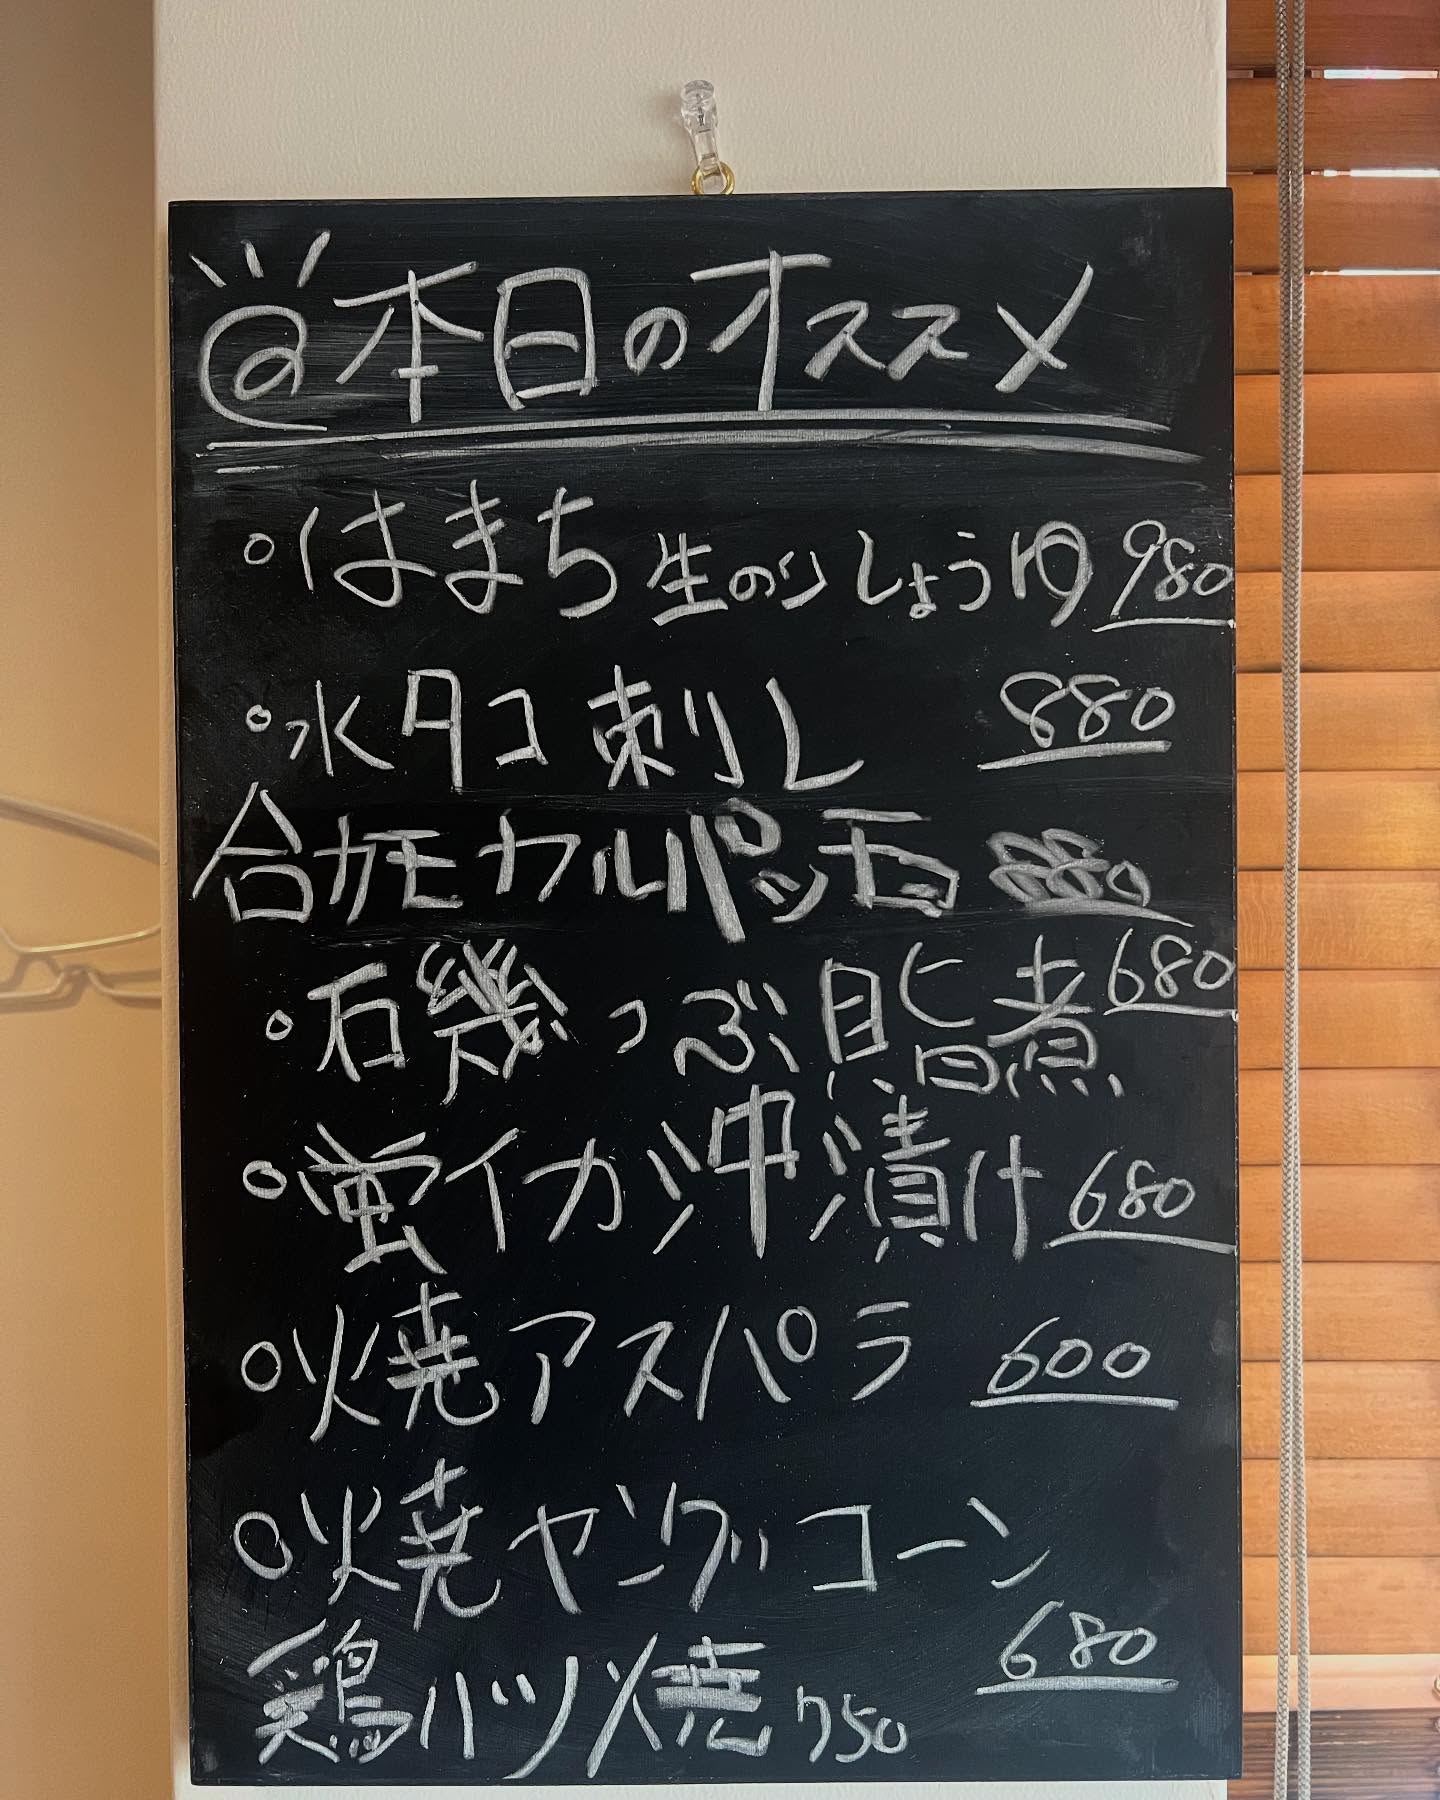 @本日のオススメ
・はまち 生のりしょうゆ 980
・水タコ刺し 880
合カモカルパッチョ 880
・石幾つぶ旨煮 680
・蛍イカ沖漬け 680
○焼アスパラ 600
○焼ヤングコーン
680
鶏ハツ焼 750